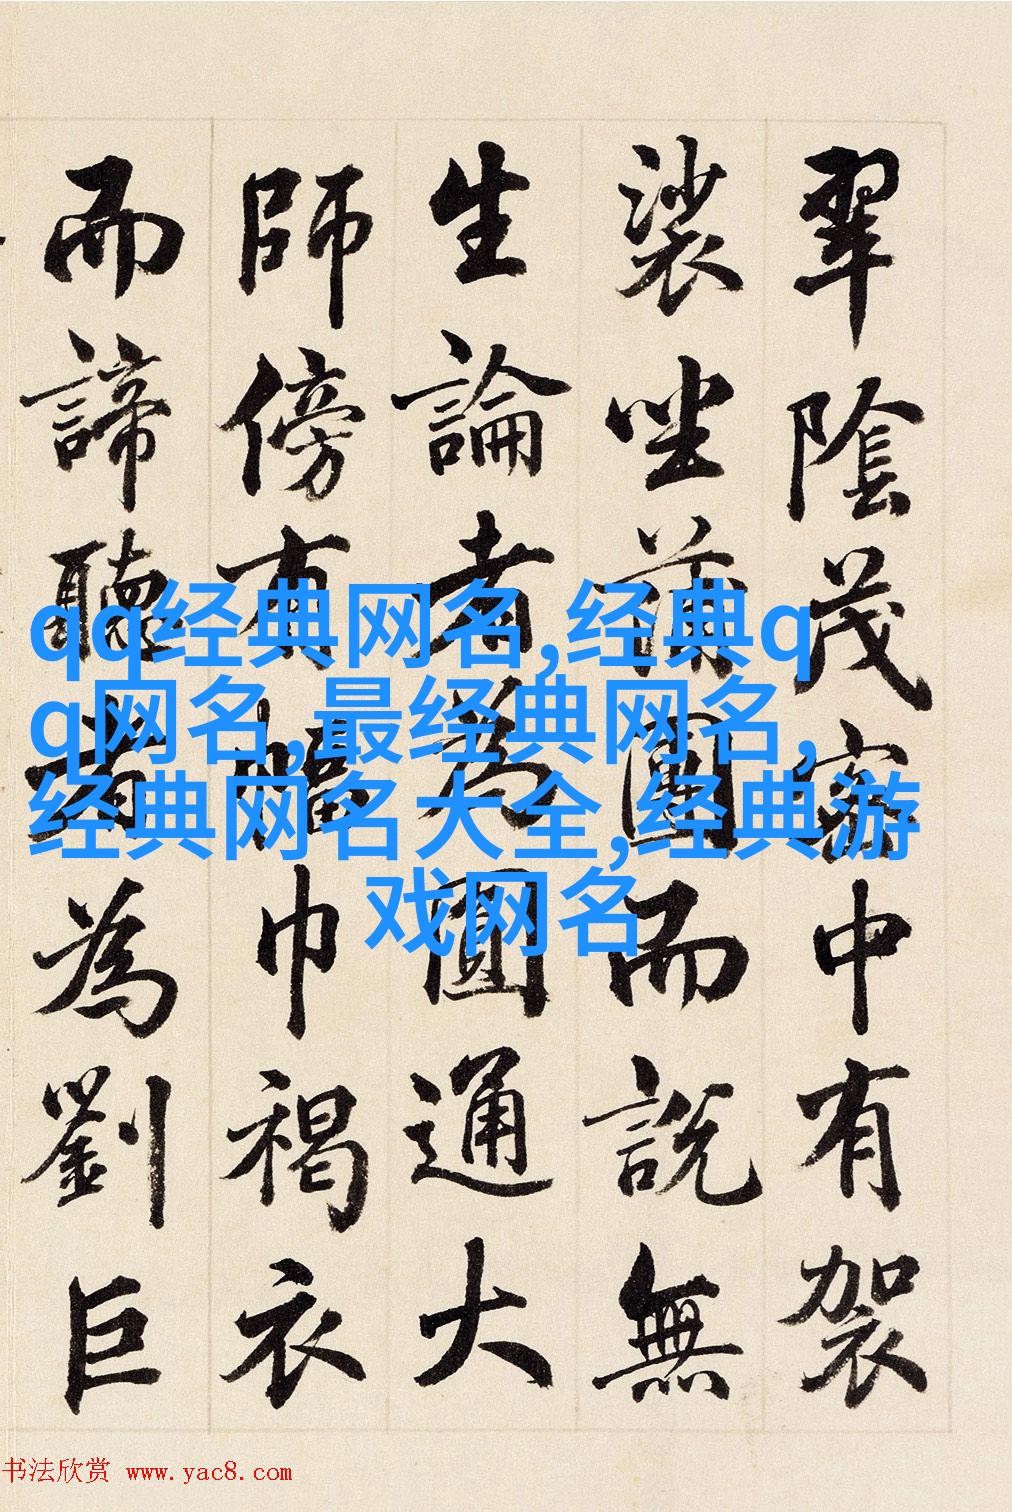 翠陰茂密中有袈
裟坐蒲團而說無
生論者為圓通大
師傍有幅巾褐衣
而諦聽者為劉巨
qq经典网名,经典q
q网名,最经典网名,
经典网名大全,经典游
戏网名
书法欣赏 www.yac8.com